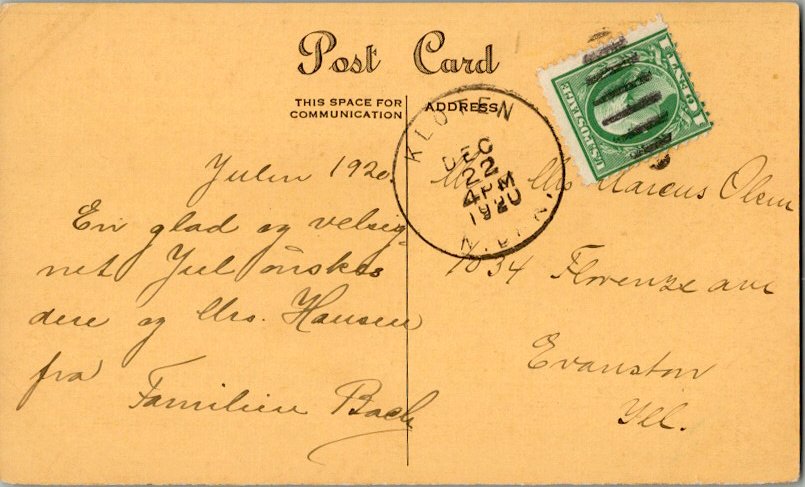 Post Card
THIS SPACE FOR
COMMUNICATION
ADDRESS
KLOTEN
DEC
22
4PM
1920
N.DAK.
U.S. POSTAGE
1 CENT 1
Julen 1920.
En glad og velsig-
net Jul önskes
dere og Mrs. Hansen
fra
Familien Bach
Mr. Mrs Marcus Olsen
1034 Florenze ave
Evanston
Ill.